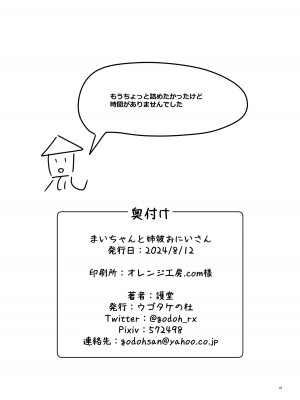 もうちょっと詰めたかったけど
時間がありませんでした
奥付け
まいちゃんと姉彼おにいさん
発行日：2024/8/12
印刷所：オレンジ工房.com様
著者：護堂
発行：ウゴタケの杜
Twitter：@godoh_rx
Pixiv：572498
連絡先：godohsan@yahoo.co.jp